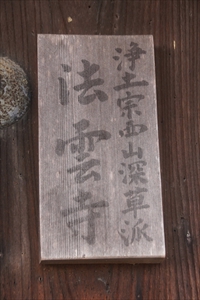 浄土宗西山深草派
法雲寺